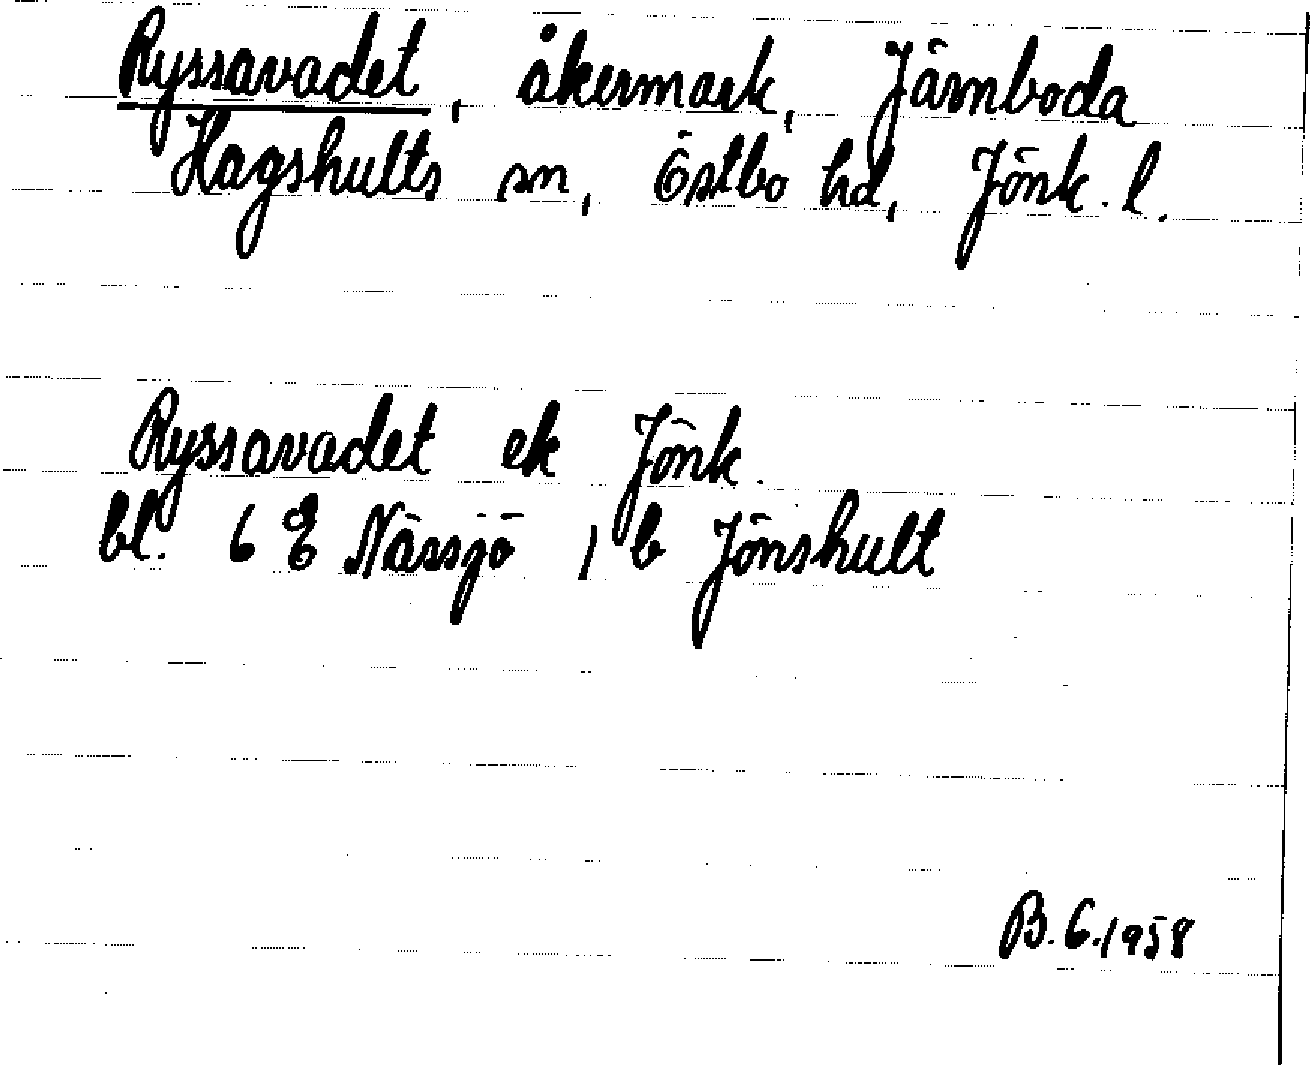 Ryssavadet, åkermark, Järnboda
Hagshults sn, Östbo hd, Jönk. l.
Ryssavadet ek Jönk.
bl. 6 E Nässjö 1 b Jönshult
B. G. 1958